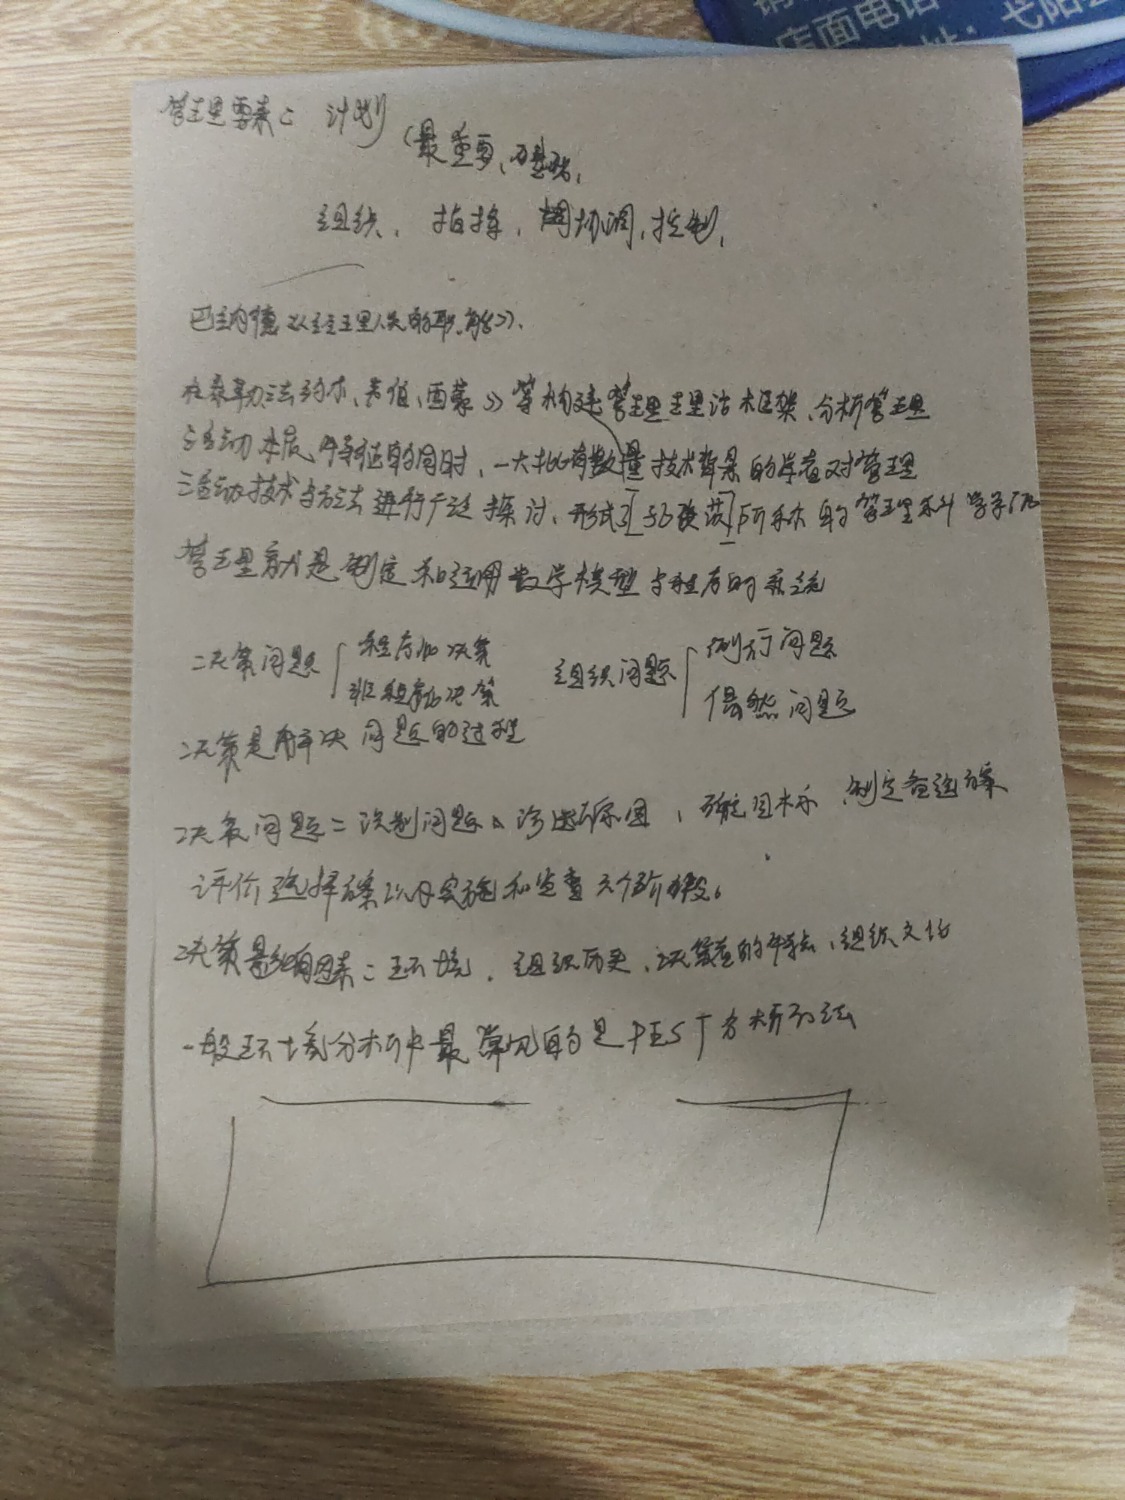 店面电话
址：弋阳
管理要素：计划
(最重要、
组织、指挥、协调、控制、
巴纳德《经理人员的职能》.
在泰勒法约尔、韦伯、西蒙》等构建管理理论框架、分析管理
活动本质、特征的同时、一大批有数量技术背景的学者对管理
活动技术与方法进行广泛探讨、形式了[ ]的管理科学学派
管理就是制定和运用数学模型与程序的系统
决策问题 { 程序化决策 组织问题 { 例行问题
非程序化决策 偶然问题
决策是解决问题的过程
决策问题：识别问题、诊断原因、确定目标、制定备选方案
评价选择方案以及实施和监查六个阶段。
决策影响因素：环境、组织历史、决策者的特点、组织文化
一般环境分析中最常见的是PEST分析方法